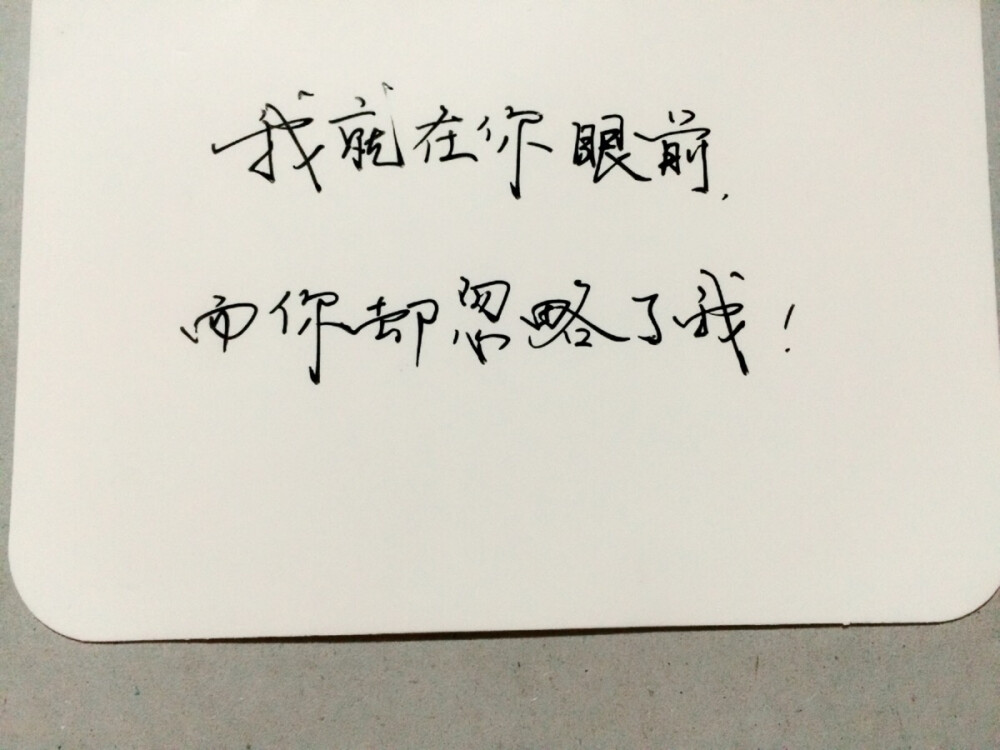 我就在你眼前.
而你却忽略了我!